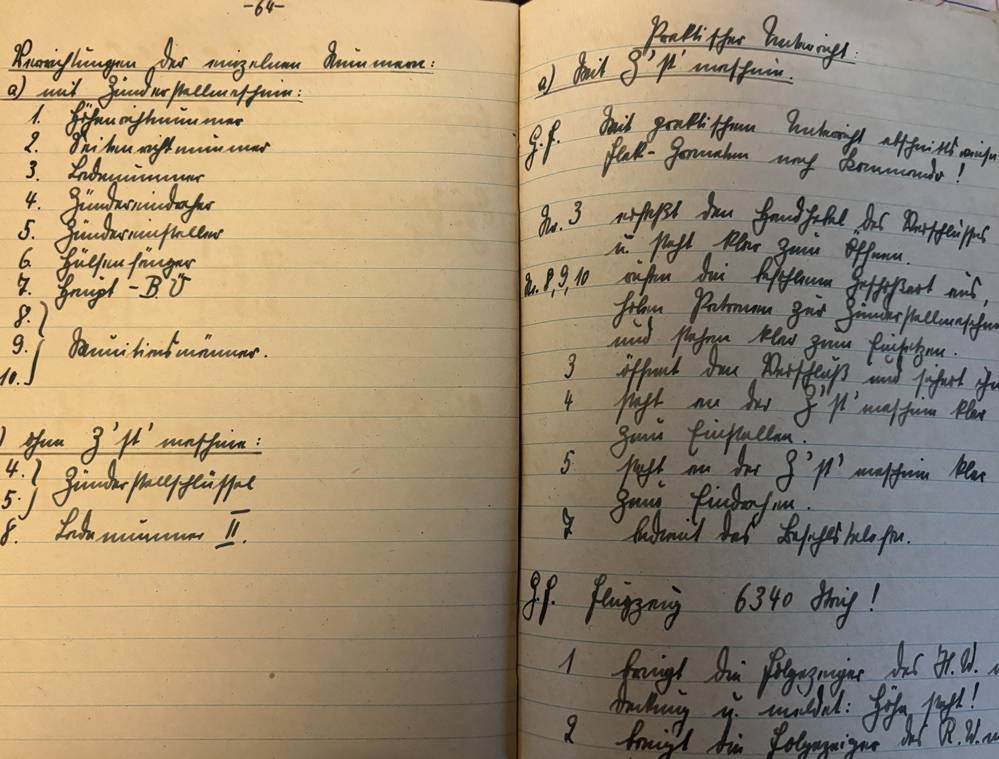 -64-
Verrichtungen der einzelnen Nummern:
a) mit Zünderstellmaschine:
1. Höhenrichtnummer
2. Seitenrichtnummer
3. Ladenummer
4. Zündereindreher
5. Zündereinsteller
6. Hülsenfänger
7. Haupt-B.Ü
8.
9. Munitionsmänner.
10.
) ohne Z'st' maschine:
4.
5. Zünderstellschlüssel
8. Ladenummer II.
Praktischer Unterricht:
a) Mit Z'st' maschine.
G.F. Mit praktischem Unterricht abschnittsweise
Flak-Granaten nach Kommando!
Nr. 3 erfaßt den Handhebel des Verschlusses
u. steht klar zum Öffnen.
Nr. 8, 9, 10 rüsten die befohlene Geschoßart aus,
holen Patronen zur Zünderstellmaschine
und stehen klar zum Einsetzen.
3 öffnet den Verschluß und sichert ihn
4 steht an der Z'st' maschine klar
zum Einstellen.
5 steht an der Z'st' maschine klar
zum Eindrehen.
7 bedient das Befehlstelefon.
G.F. Flugzeug 6340 Strich!
1 bringt die Folgezeiger des H.W.
Deckung u. meldet: Höhe steht!
2 bringt die Folgezeiger des R.W.